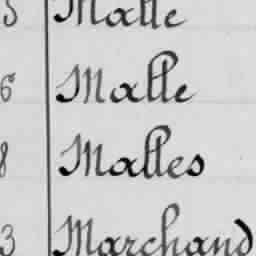 5 Malle
6 Malle
8 Malles
3 Marchand